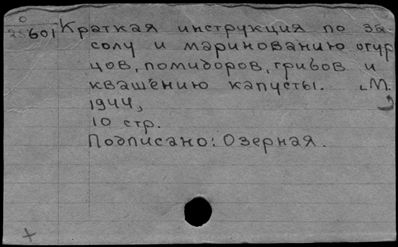 601 Краткая инструкция по за-
солу и маринованию огур
цов, помидоров, грибов и
квашению капусты. М.
1944,
10 стр.
Подписано: Озерная.